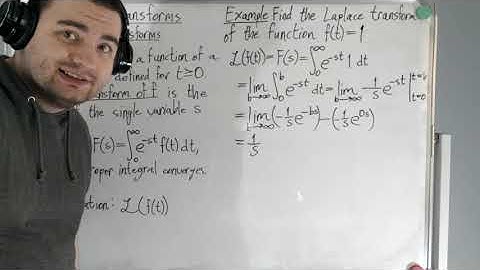 ransforms
nsforms
a function of a
defined for t≥0.
ansform of f is the
the single variable s
F(s)=∫₀^∞ e^{-st} f(t) dt,
roper integral converges.
ation: ℒ(f(t))
Example Find the Laplace transform
of the function f(t)=1
ℒ(f(t))=F(s)=∫₀^∞ e^{-st} 1 dt
=lim_{b→∞} ∫₀^b e^{-st} dt = lim_{b→∞} -1/s e^{-st} |_{t=0}^{t=b}
=lim_{b→∞} (-1/s e^{-bs}) - (1/s e^{0s})
=1/s